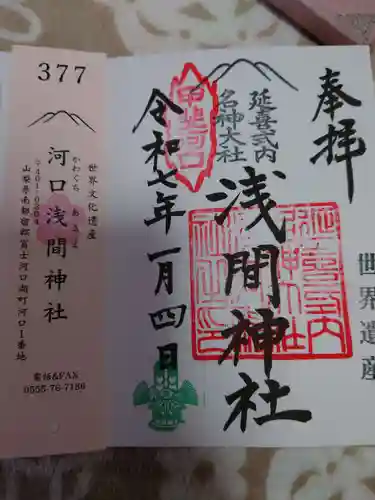 奉拝
世界遺産
延喜式内
名神大社
浅間神社
甲斐河口
令和七年一月四日
377
世界文化遺産
かわぐち あさま
河口浅間神社
〒401-0304
山梨県南都留郡富士河口湖町河口1番地
電話&FAX
0555-76-7186